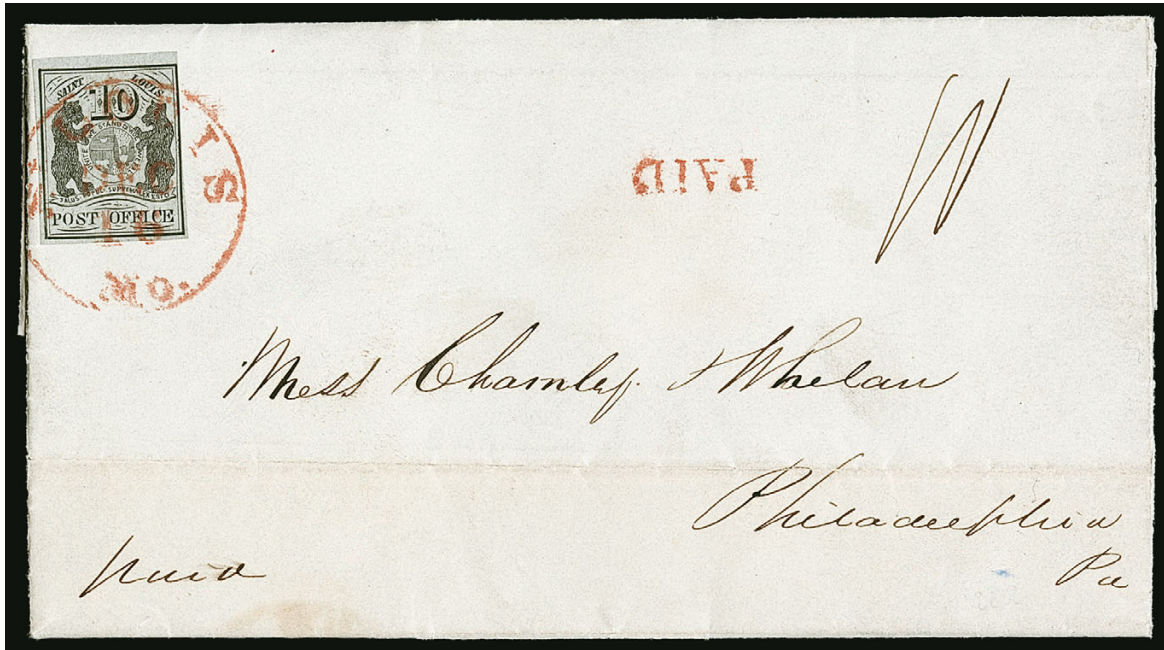 SAINT LOUIS
10
POST OFFICE
ST. LOUIS
16
MO.
PAID
10
Mess Charnley & Whelan
Philadelphia
Pa
paid